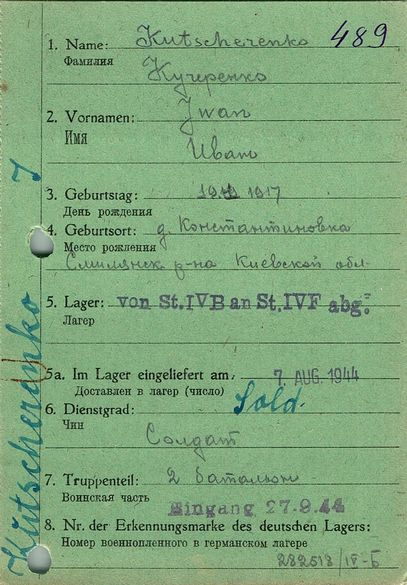 1. Name: Kutscherenko 489
Фамилия
Кучеренко
2. Vornamen: Jwan
Имя
Иван
3. Geburtstag: 1917
День рождения
4. Geburtsort: д. Константиновка
Место рождения
Смилянск. р-на Киевской обл.
5. Lager: von St.IVB an St.IVF abg.
Лагер
5a. Im Lager eingeliefert am: 7. AUG. 1944
Доставлен в лагер (число)
6. Dienstgrad: Sold.
Чин
Солдат
7. Truppenteil: 2 батальон
Воинская часть
Eingang 27.9.44
8. Nr. der Erkennungsmarke des deutschen Lagers:
Номер военнопленного в германском лагере
282513/IV-Б
Kutscherenko J